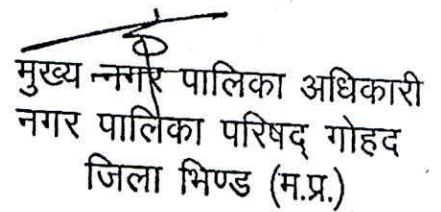 मुख्य नगर पालिका अधिकारी
नगर पालिका परिषद् गोहद
जिला भिण्ड (म.प्र.)